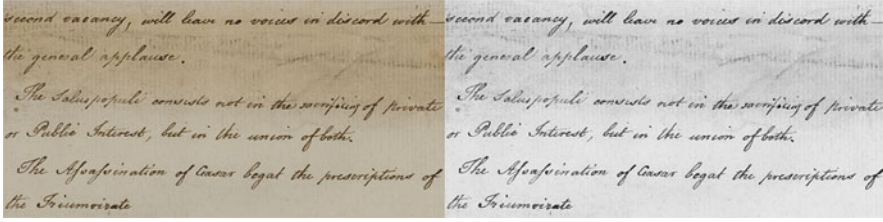 second vacancy, will leave no voices in discord with
the general applause.
The Salus populi consists not in the sacrificing of private
or Public Interest, but in the union of both.
The Aſsaſsination of Cæsar begat the prescriptions of
the Triumvirate
second vacancy, will leave no voices in discord with
the general applause.
The Salus populi consists not in the sacrificing of private
or Public Interest, but in the union of both.
The Aſsaſsination of Cæsar begat the prescriptions of
the Triumvirate